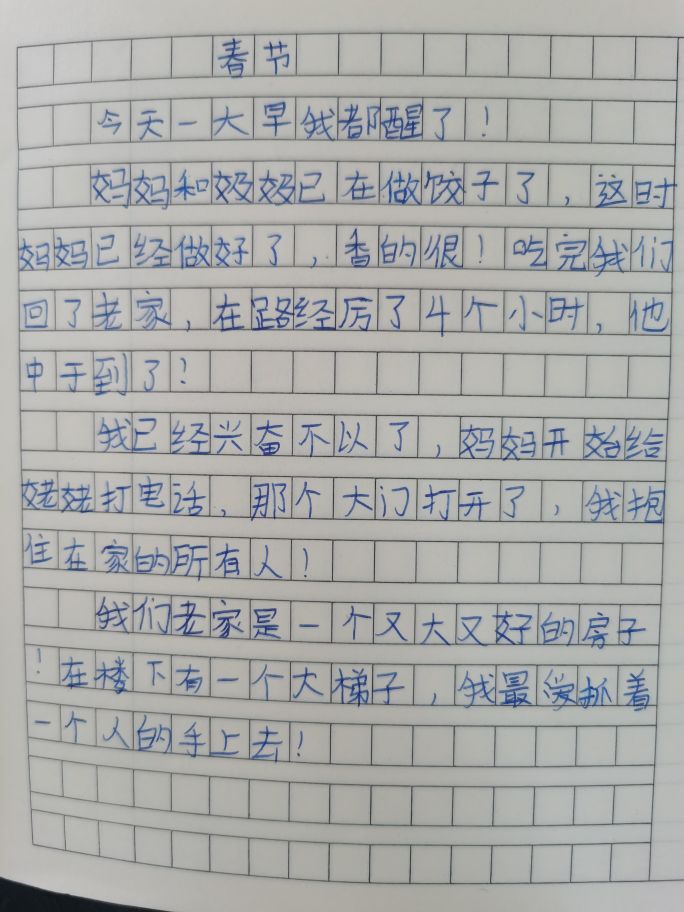 春节
今天一大早我都醒了！
妈妈和奶奶已在做饺子了，这时
妈妈已经做好了，香的很！吃完我们
回了老家，在路经厉了4个小时，他
中于到了！
我已经兴奋不以了，妈妈开始给
姥姥打电话，那个大门打开了，我抱
住在家的所有人！
我们老家是一个又大又好的房子
！在楼下有一个大梯子，我最爱抓着
一个人的手上去！